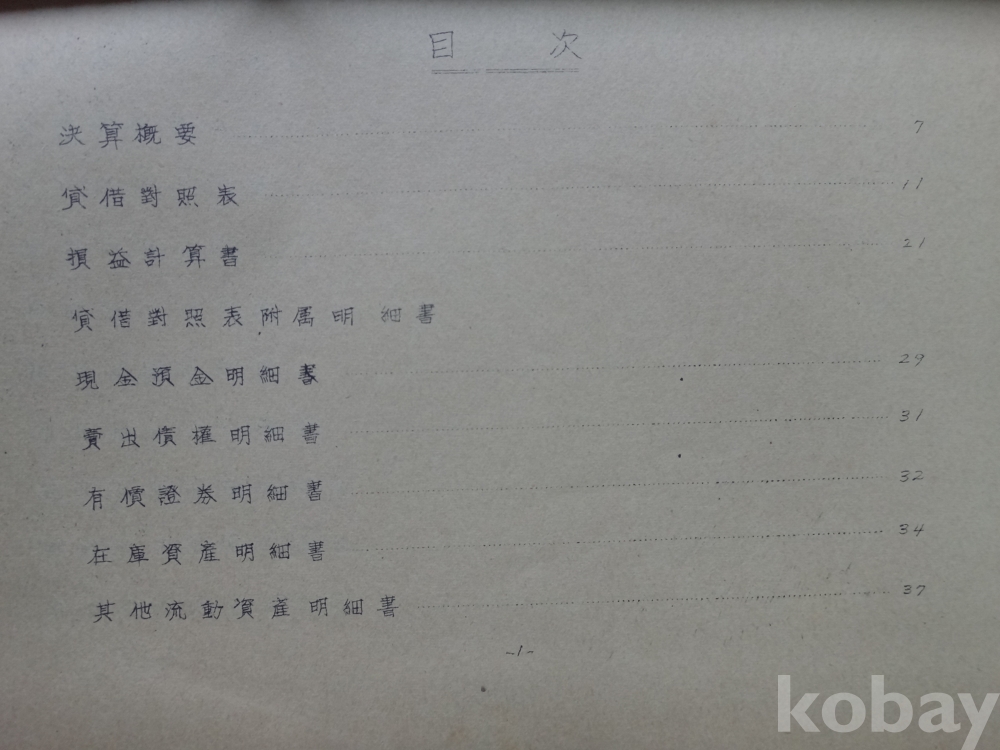 目 次
決算概要 7
貸借對照表 11
損益計算書 21
貸借對照表附属明細書
現金預金明細書 29
賣出債權明細書 31
有價證券明細書 32
在庫資産明細書 34
其他流動資産明細書 37
-1-
kobay